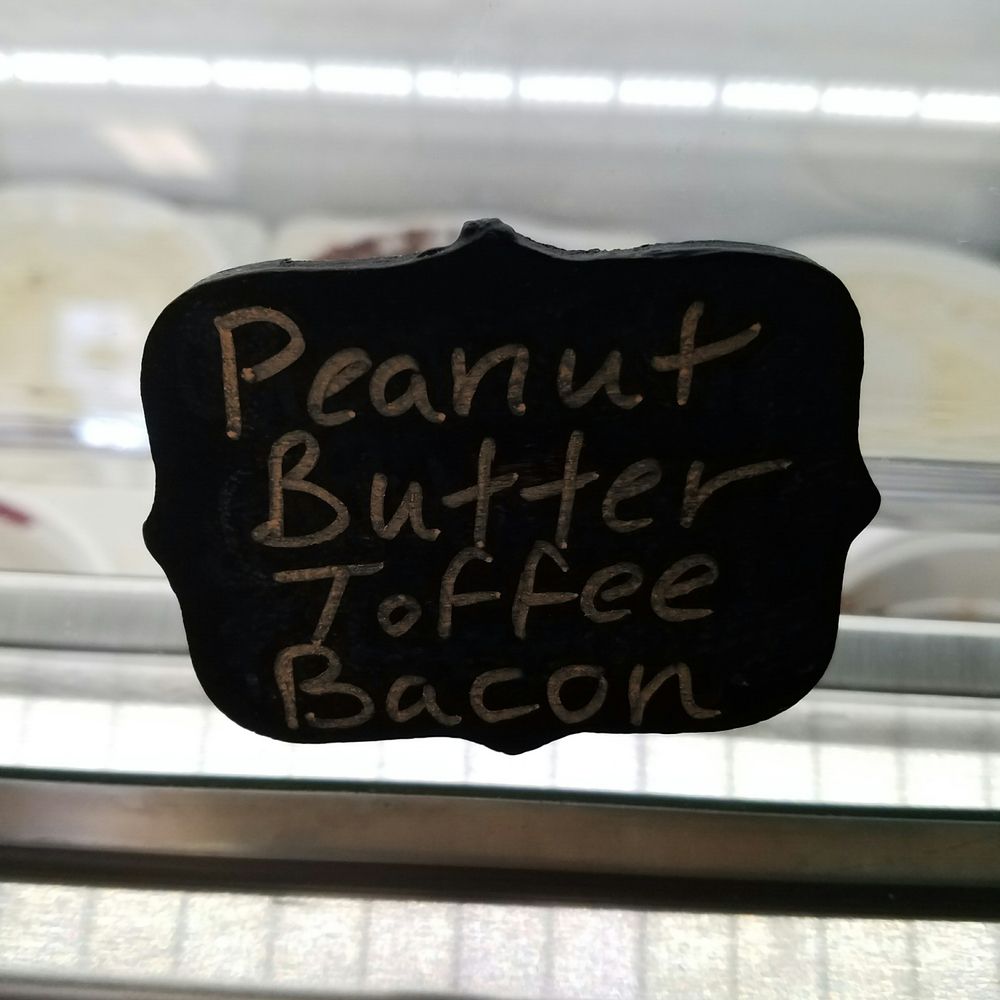 Peanut
Butter
Toffee
Bacon